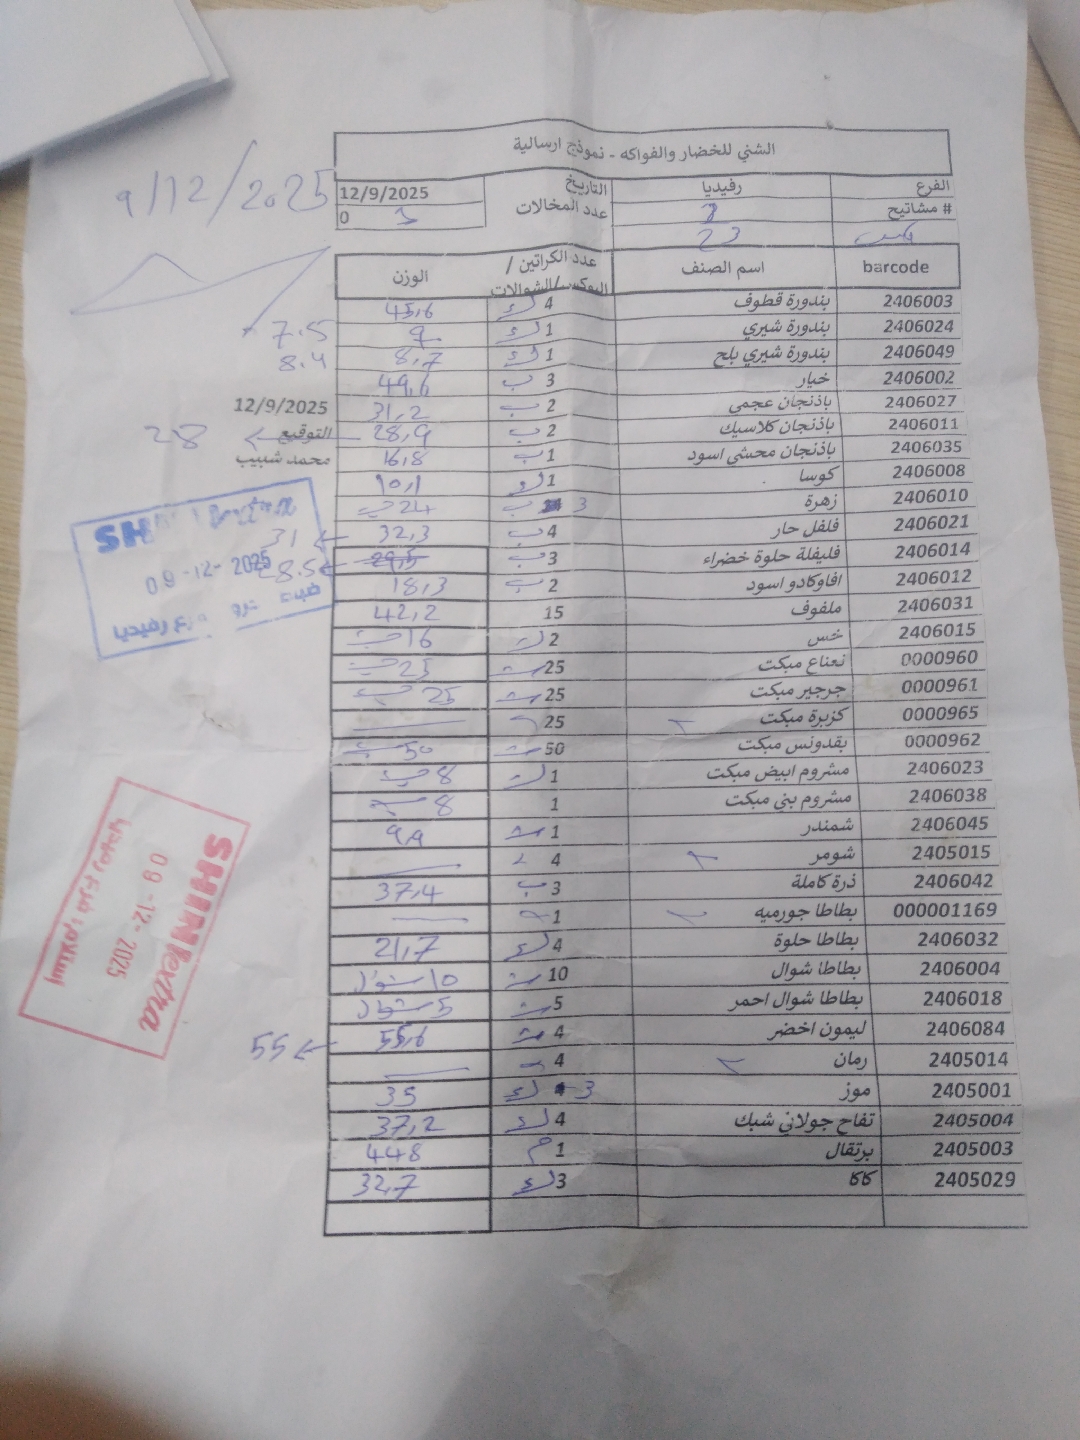 الشني للخضار والفواكه - نموذج ارسالية
الفرع رفيديا التاريخ 12/9/2025
# مشاتيح عدد المخالات 0 3
23
9/12/2025
barcode اسم الصنف عدد الكراتين / البوكس/الشوالات الوزن
2406003 بندورة قطوف 4 45,6
2406024 بندورة شيري 1 9 7.5
2406049 بندورة شيري بلح 1 8,7 8.4
2406002 خيار 3 ب 49,6
2406027 باذنجان عجمي 2 ب 31,2
12/9/2025
2406011 باذنجان كلاسيك 2 ب 28,9 28
التوقيع
2406035 باذنجان محشي اسود 1 ب 16,8
محمد شبيب
2406008 كوسا 1 10,1
2406010 زهرة 3 ب 24
2406021 فلفل حار 4 ب 32,3 31
2406014 فليفلة حلوة خضراء 3 ب 29,5 28.5
2406012 افاوكادو اسود 2 ب 18,3
2406031 ملفوف 15 42,2
2406015 خس 2 16
0000960 نعناع مبكت 25 25
0000961 جرجير مبكت 25 25
0000965 كزبرة مبكت 25
0000962 بقدونس مبكت 50 50
2406023 مشروم ابيض مبكت 1 8
2406038 مشروم بني مبكت 1 8
2406045 شمندر 1
2405015 شومر 4
2406042 ذرة كاملة 3 ب 37,4
000001169 بطاطا جورميه 1
2406032 بطاطا حلوة 4 21,7
2406004 بطاطا شوال 10 10 شوال
2406018 بطاطا شوال احمر 5 5 شوال
2406084 ليمون اخضر 4 55,6 55
2405014 رمان 4
2405001 موز 3 35
2405004 تفاح جولاني شبك 4 37,2
2405003 برتقال 1 م 448
2405029 كاكا 3 32,7
09-12-2025
رفيديا
SHINIextra
09-12-2025